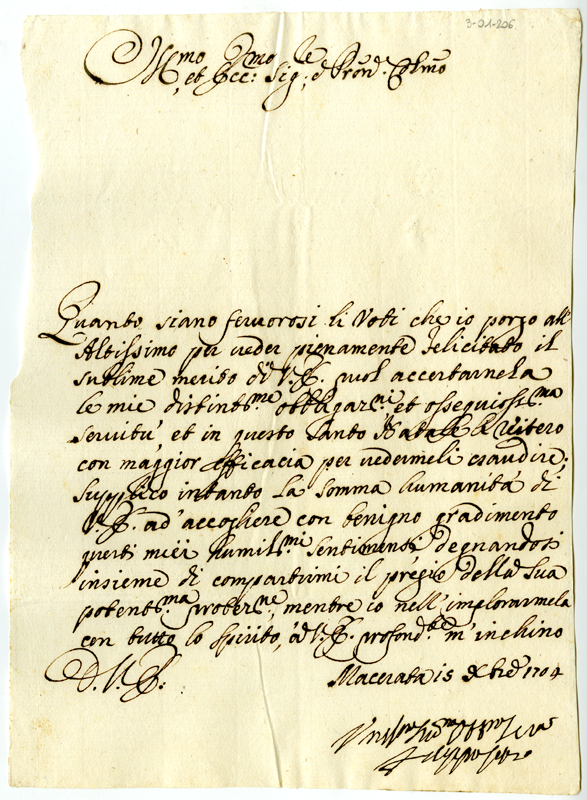 3-01-206
Ill.mo
et Ecc: Sig.re e Pron. Col.mo
Quanto siano fervorosi li Voti che io porgo all'
Altissimo per veder pienamente felicitato il
sublime merito di V.E. vuol accertarnela
le mie distint.me obbligaz.ni, et ossequiosis.ma
servitù, et in questo Santo Natale li reitero
con maggior efficacia per vedermeli esaudire;
supplico intanto la somma humanità di
V.E. ad' accogliere con benigno gradimento
questi miei humil.mi sentimenti degnandosi
insieme di compartirmi il pregio della sua
potent.ma protez.ne, mentre io nell' implorarmela
con tutto lo spirito, à V.E. profond.te m'inchino
D. V. E.
Macerata 15 Xbre 1704